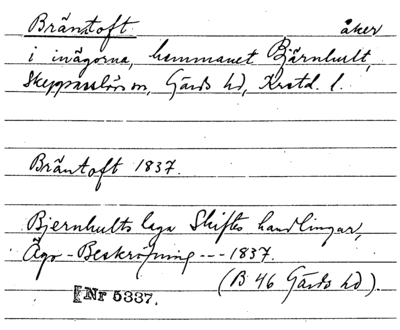 Bräntoft åker
i inägorna, hemmanet Bjärnhult,
Skeppslövs sn, Gärds hd, Krstd. l.
Bräntoft 1837.
Bjernhults laga Skiftes handlingar,
Ägo-Beskrifning --- 1837.
(B 46 Gärds hd).
Nr 5337.